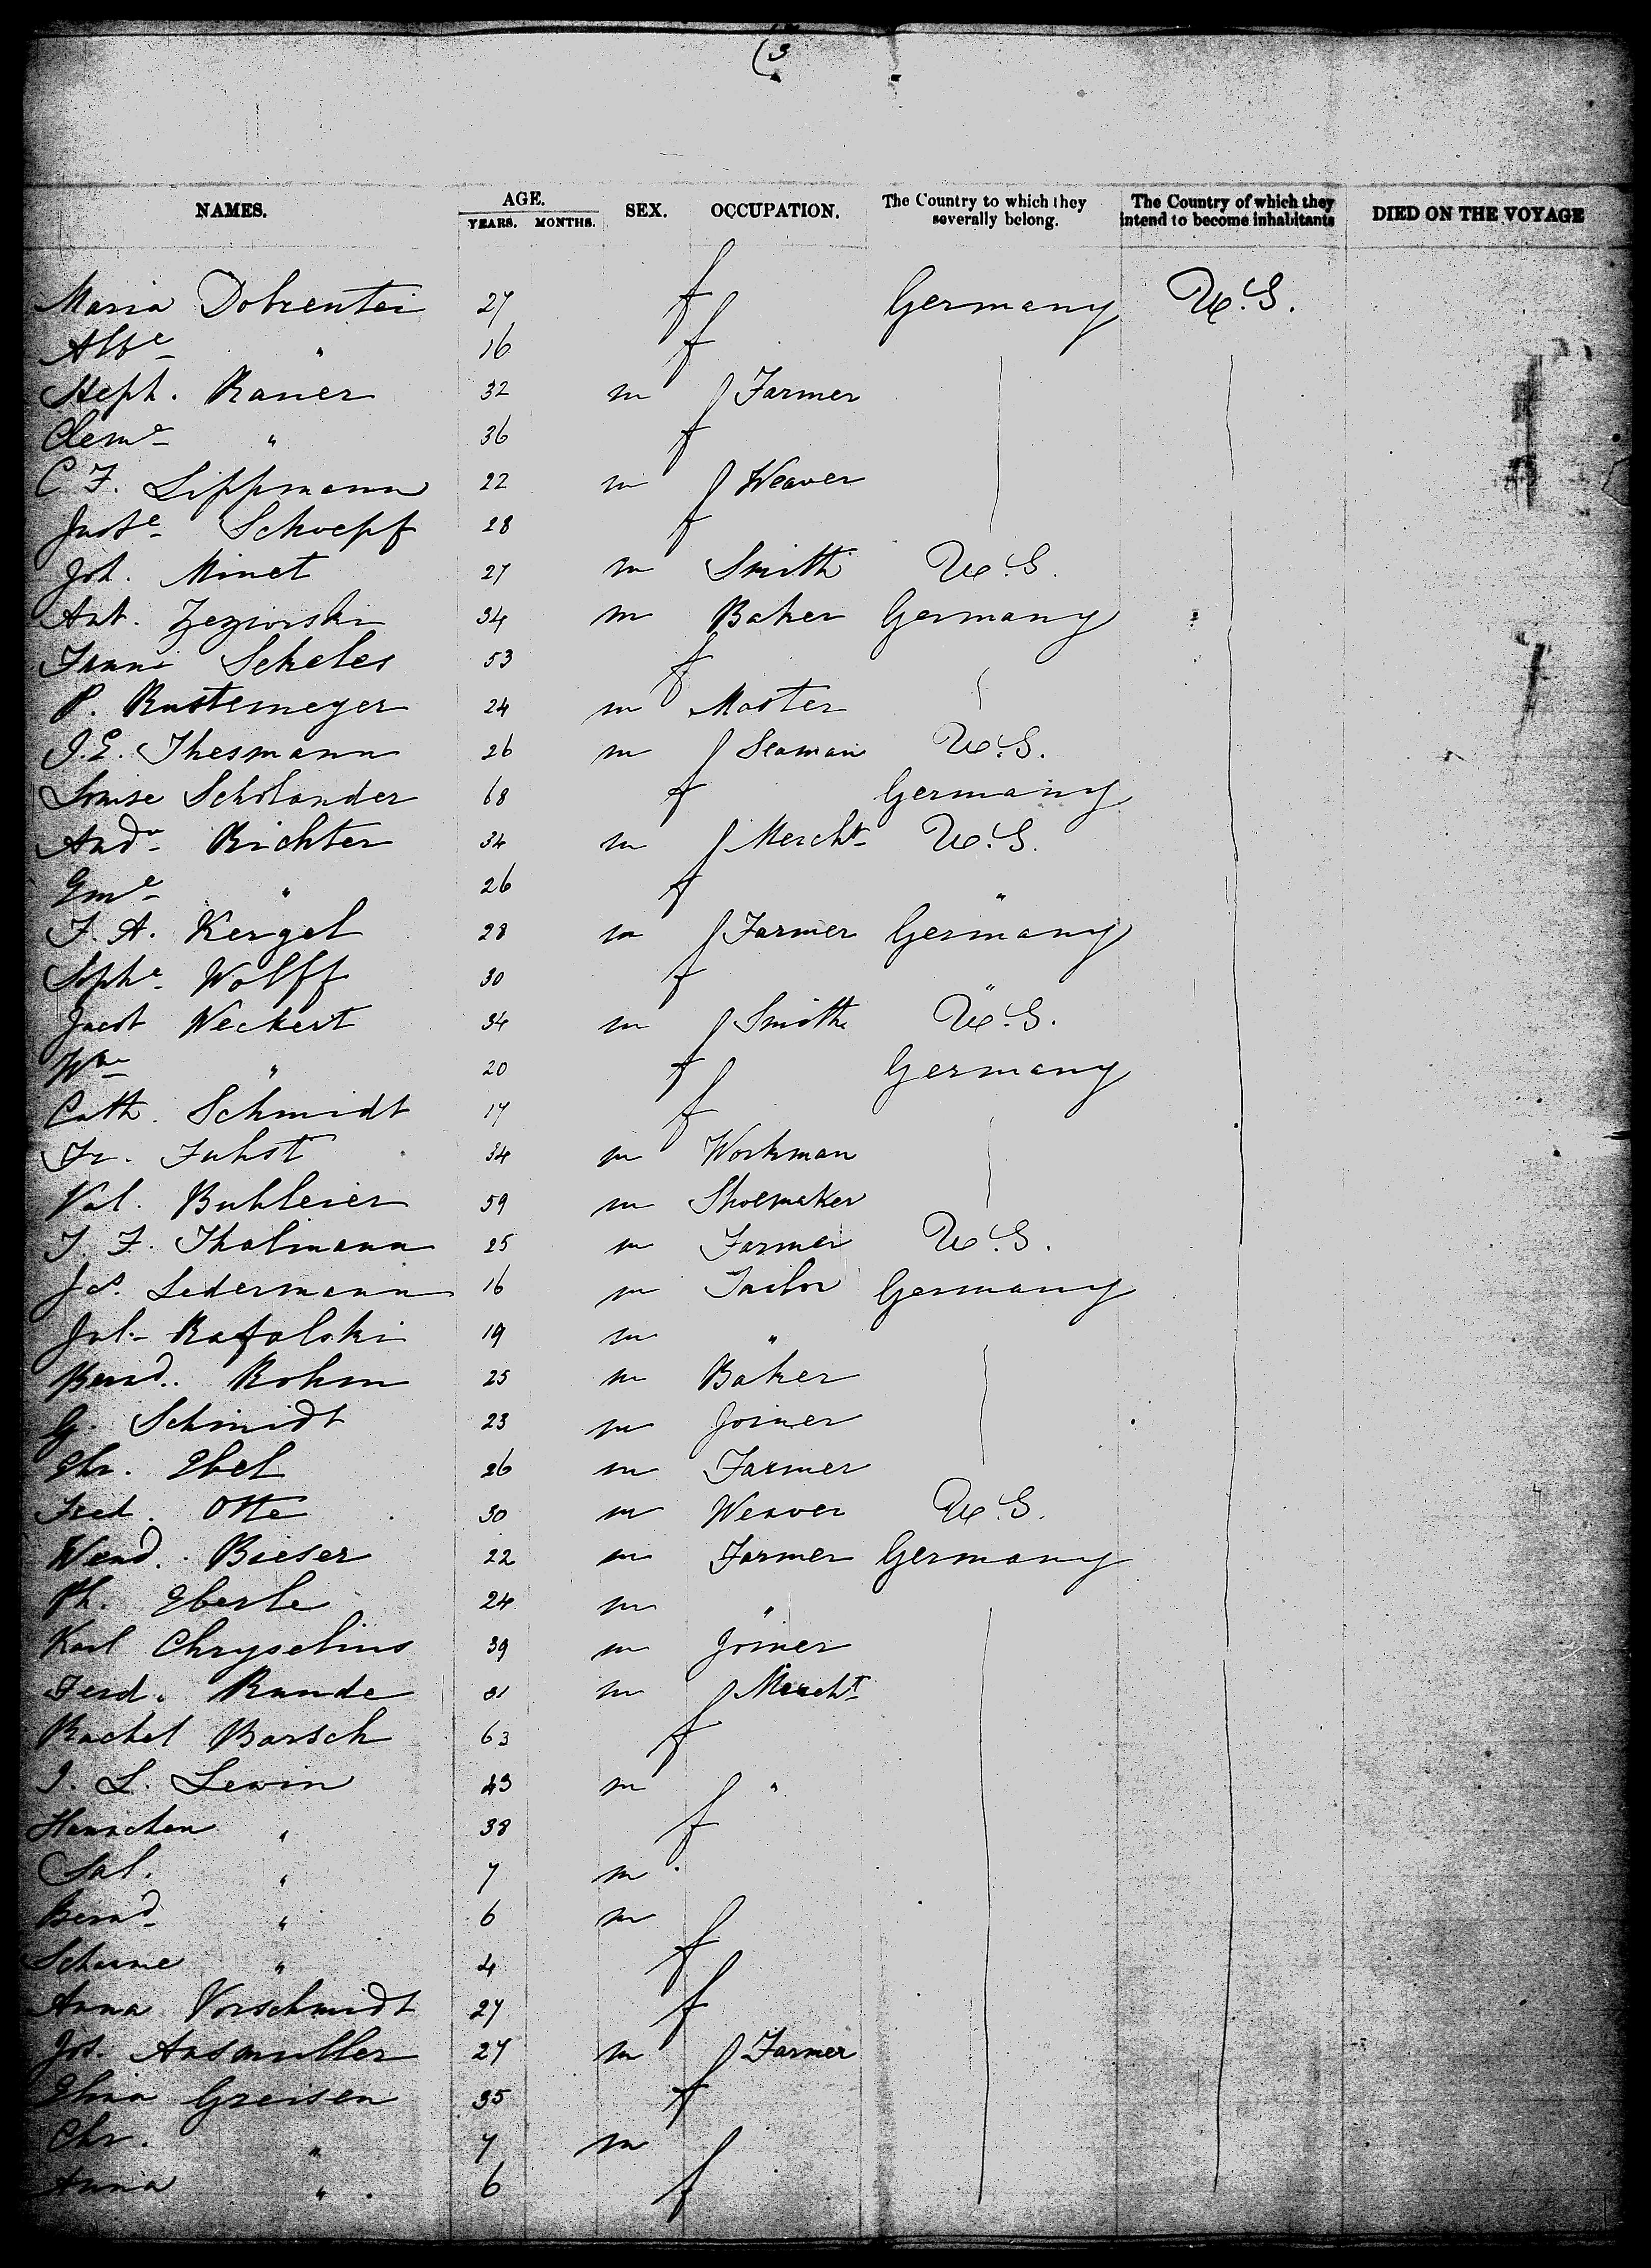 (3
NAMES. AGE. YEARS. MONTHS. SEX. OCCUPATION. The Country to which they severally belong. The Country of which they intend to become inhabitants DIED ON THE VOYAGE
Maria Dobrentei 27 f Germany U.S.
Albe " 16 f
Steph. Raner 32 m Farmer
Cleme " 36 f
C F. Lippmann 22 m Weaver
Juste Schoepf 28 f
Joh. Minet 27 m Smith U.S.
Ant. 34 m Baker Germany
Fanni Scheles 53 f
P. Rustemeyer 24 m Master
J.E. Thesmann 26 m Seaman U.S.
Louise Scholander 68 f Germany
Andw Richter 34 m Mercht U.S.
Eme " 26 f "
F. A. Kergel 28 m Farmer Germany
Sophe Wolff 30 f "
Jacob Weckert 34 m Smith U.S.
Wme " 20 f Germany
Cath. Schmidt 17 f
Fr. Juhst 34 m Workman
Val. Buhleier 59 m Shoemaker
J. F. Thalmann 25 m Farmer U.S.
Js. Ledermann 16 m Tailor Germany
Jul. Rafalski 19 m "
Bernd. Rohm 25 m Baker
G. Schmidt 23 m Joiner
Chr. Ebel 26 m Farmer
Fred. Otte 30 m Weaver U.S.
Wend. Bieser 22 m Farmer Germany
Ph. Eberle 24 m "
Karl Chryselius 39 m Joiner
Ferd. Runde 31 m Mercht
Rachel Barsch 63 f
J. L. Lewin 43 m "
Hannchen " 38 f
Sal. " 7 m
Bernd " 6 m
" 4 f
Anna Vorschmidt 27 f
Jos. Ansmuller 27 m Farmer
Elina Greisen 35 f
Chr. " 7 m
Anna " 6 f